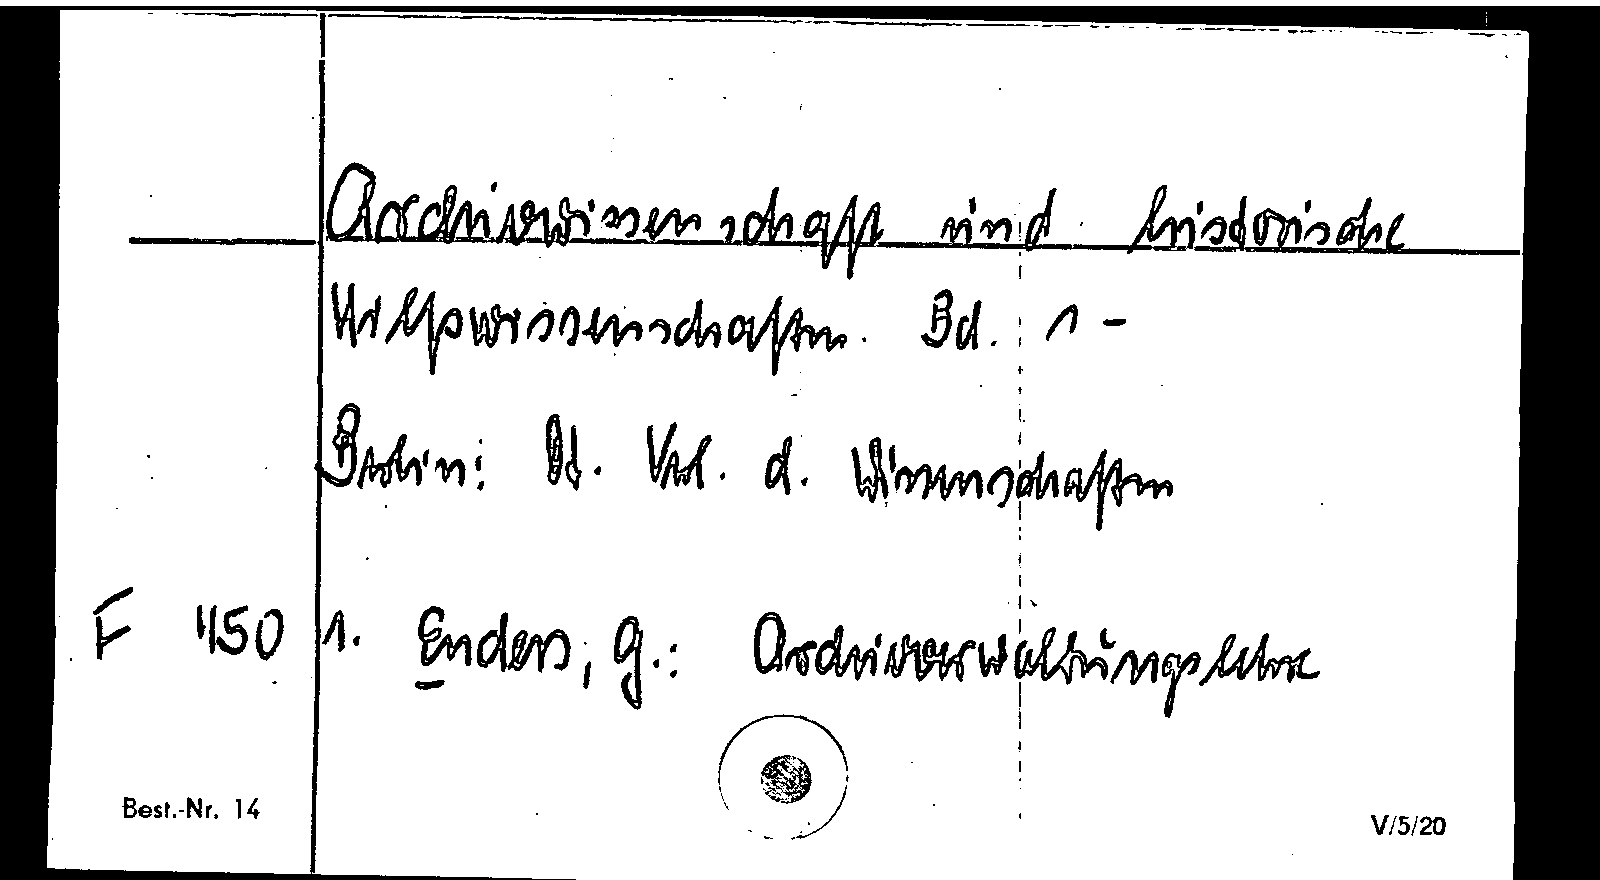 Archivwissenschaft und historische
Hilfswissenschaften. Bd. 1 -
Berlin: Dt. Verl. d. Wissenschaften
F 450 1. Enders, G.: Archivverwaltungslehre
Best.-Nr. 14 V/5/20